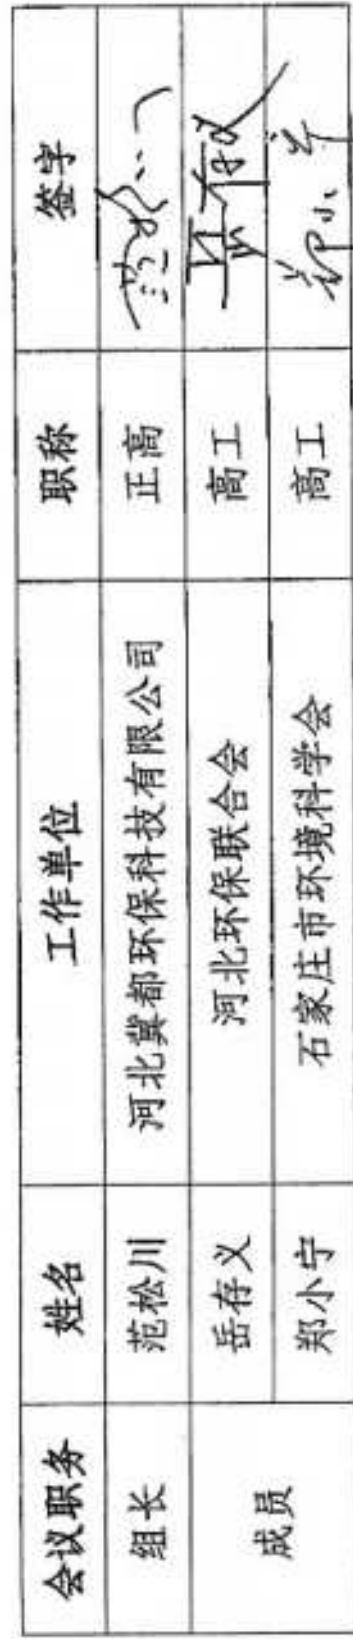 会议职务 姓名 工作单位 职称 签字
组长 范松川 河北冀都环保科技有限公司 正高
成员 岳存义 河北环保联合会 高工 岳存义
郑小宁 石家庄市环境科学会 高工 郑小宁